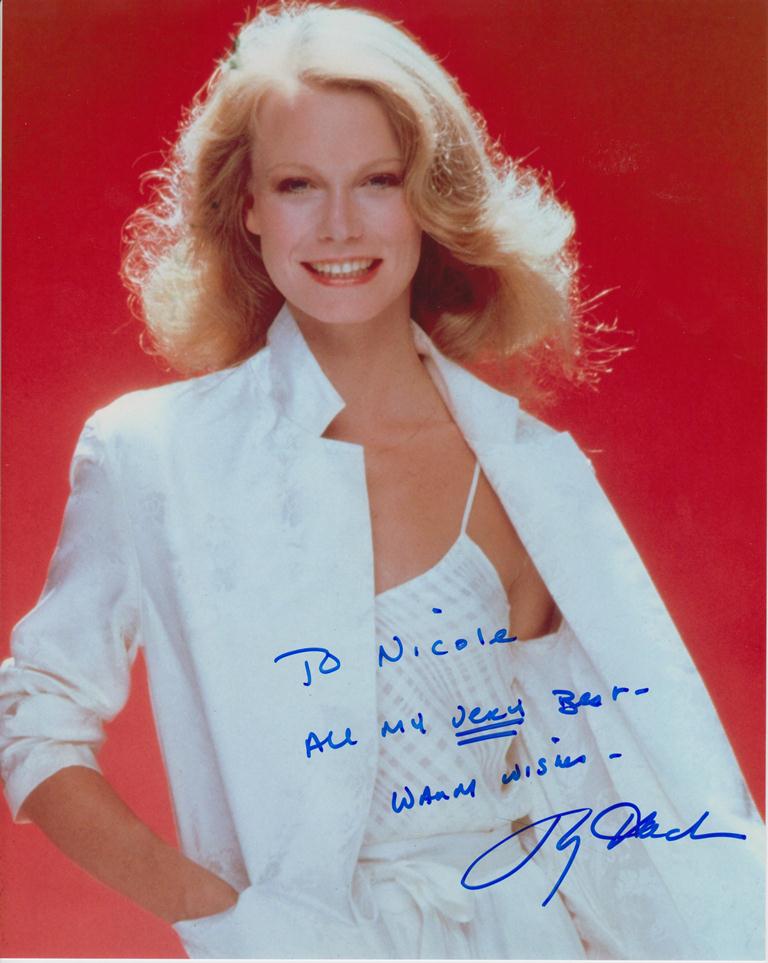 To Nicole
All my very Best-
Warm wishes -